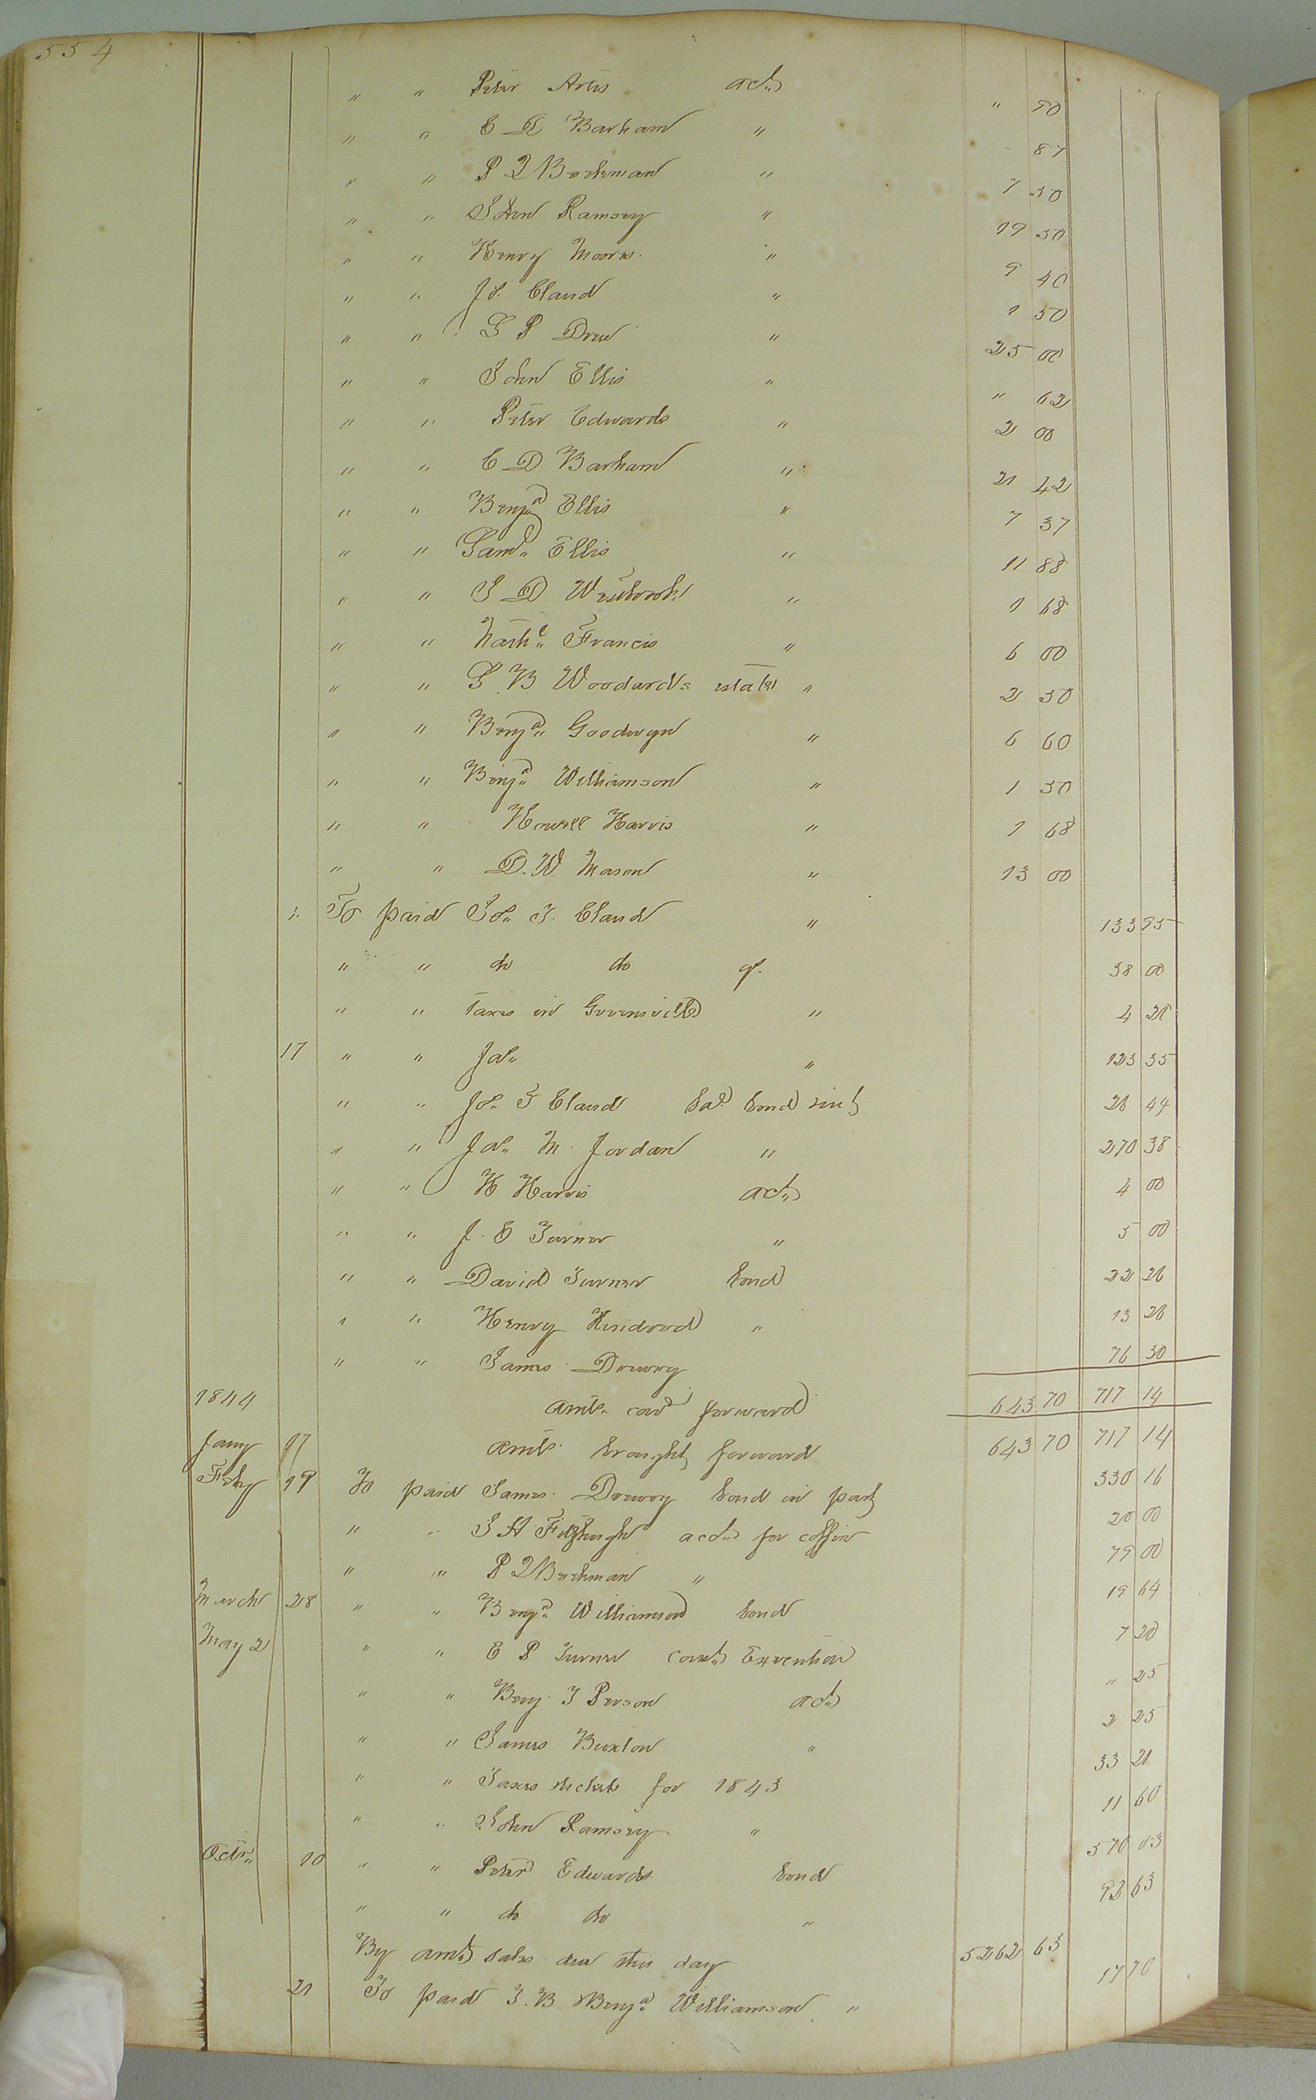 554
" " Peter Artis act " 50
" " E D Barham " 87
" " P Bookman " 7 50
" " John Ramsey " 19 50
" " Henry Moore " 9 40
" " Js. Claud " 1 50
" " G P Drew " 25 00
" " John Ellis " " 62
" " Peter Edwards " 2 00
" " E D Barham " 21 42
" " Benja Ellis " 7 37
" " Saml. Ellis " 11 88
" " J D Westbrook " 1 68
" " Nathl. Francis " 6 00
" " S B Woodards estate " 2 50
" " Benja. Goodwyn " 6 60
" " Benja. Williamson " 1 50
" " Howell Harris " 1 68
" " D. W Mason " 13 00
" To paid Js. T. Claud " 133 95
" " do do 38 00
" " Taxes in Greensville " 4 28
17 " " " 123 35
" " Js. T Claud bal. bond 28 44
" " Jas. M. Jordan " 270 38
" " H Harris act. 4 00
" " J. E Turner " 5 00
" " David Turner bond 22 28
" " Henry Kindred " 13 28
" " James Drewry 76 30
1844 amt. card forward 643 70 717 14
Jany 17 amt. brought forward 643 70 717 14
Feby 19 To paid James Drewry bond in part 330 16
" " Fitzhugh acct. for coffin 20 00
" " P Bookman " 79 00
March 28 " " Benja. Williamson bond 19 64
May 2 " " E P Turner Execution 7 20
" " Benj. T Person act. " 25
" " James Buxton " 2 25
" " Taxes tickets for 1843 33 21
" " John Ramsey " 11 60
Octr. 10 " " Peter Edwards bond 570 03
" " do do " 92 63
By amt. sales due this day 5262 63
21 To paid J. B. Benja. Williamson " 17 70